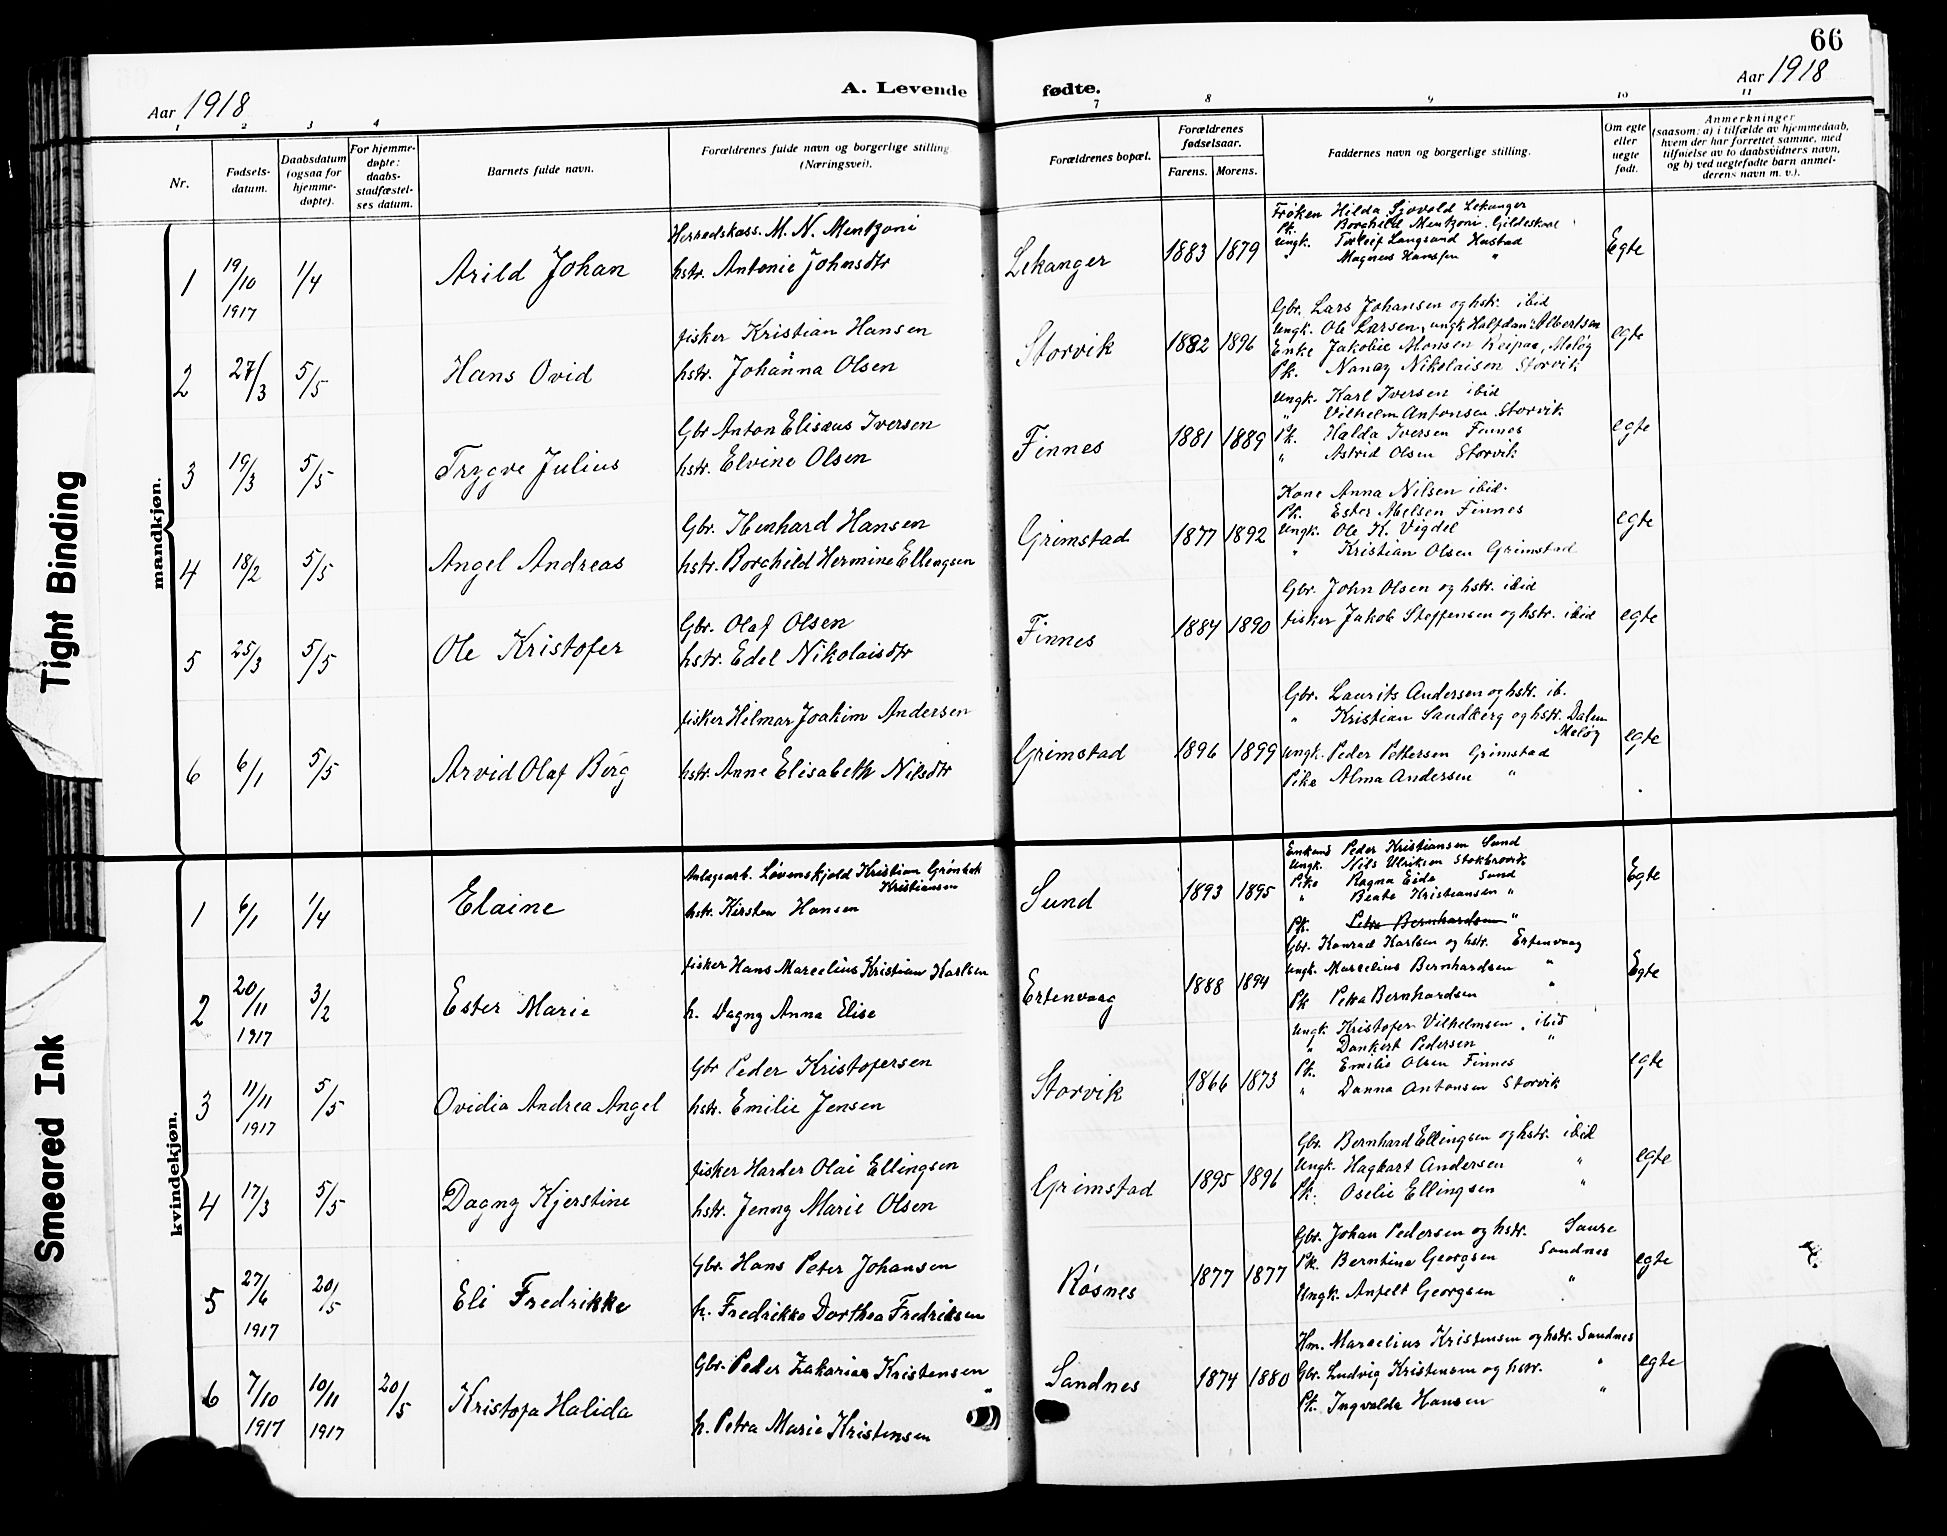 66
Aar 1918
A. Levende fødte.
Aar 1918
1 2 3 4 7 8 9 10 11
Nr.
Fødsels-
datum.
Daabsdatum
(ogsaa for
hjemme-
døpte).
For hjemme-
døpte:
daabs-
stadfæstel-
ses datum.
Barnets fulde navn.
Forældrenes fulde navn og borgerlige stilling
(Næringsvei).
Forældrenes bopæl.
Forældrenes
fødselsaar.
Farens. Morens.
Faddernes navn og borgerlige stilling.
Om egte
eller
uegte
født.
Anmerkninger
(saasom: a) i tilfælde av hjemmedaab,
hvem der har forrettet samme, med
tilføielse av to daabsvidners navn,
og b) ved uegtefødte barn anmel-
derens navn m. v.).
mandkjøn.
1 19/10 1917 1/4 Arild Johan
Herredskass. M. N. Mentzoni
hstr. Antonie Johnsdtr
Lekanger 1883 1879
Frøken Hilda Sjøvold Lekanger
Pk. Borghild Mentzoni Gildeskaal
Ungk. Torleif Langsand Hustad
" Magnus Hanssen "
Egte
2 27/3 5/5 Hans Ovid
fisker Kristian Hansen
hstr. Johanna Olsen
Storvik 1882 1896
Gbr. Lars Johansen og hstr. ibid
Ungk. Ole Larsen, ungk Halfdan Albertsen
Enke Jakobie Monsen Reipaa, Meløy
Pk. Nancy Nikolaisen Storvik
egte
3 19/3 5/5 Trygve Julius
Gbr Anton Elisæus Iversen
hstr. Elvine Olsen
Finnes 1881 1889
Ungk. Karl Iversen ibid
" Vilhelm Antonsen Storvik
Pk. Halda Iversen Finnes
" Astrid Olsen Storvik
egte
4 18/2 5/5 Angel Andreas
Gbr. Ibenhard Hansen
hstr. Borghild Hermine Ellingsen
Grimstad 1877 1892
Kone Anna Nilsen ibid.
Pk. Ester Nielsen Finnes
Ungk. Ole K. Vigdel
" Kristian Olsen Grimstad
egte
5 25/3 5/5 Ole Kristofer
Gbr. Olaf Olsen
hstr. Edel Nikolaisdtr
Finnes 1884 1890
Gbr. John Olsen og hstr. ibid
fisker Jakob Steffensen og hstr. ibid
egte
6 6/1 5/5 Arvid Olaf Berg
fisker Hilmar Joakim Andersen
hstr. Anne Elisabeth Nilsdtr
Grimstad 1896 1899
Gbr. Laurits Andersen og hstr. ib.
" Kristian Sandberg og hstr. Dalen
Meløy
Ungk. Peder Pettersen Grimstad
Pike Alma Andersen "
egte
kvindekjøn.
1 6/1 1/4 Elaine
Anlægsarb. Løvenskjold Kristian Grønbek
Kristiansen
hstr. Kirsten Hansen
Sund 1893 1895
Enkem Peder Kristiansen Sund
Ungk. Nils Ulriksen
Pike Ragna Eide Sund
" Beate Kristiansen "
Pk. Petra Bernhardsen "
Egte
2 20/11 1917 3/2 Ester Marie
fisker Hans Marcelius Kristian Karlsen
h. Dagny Anna Elise
Ertenvaag 1888 1894
Gbr. Konrad Karlsen og hstr. Ertenvaag
Ungk. Marcelius Bernhardsen "
Pk Petra Bernhardsen "
Egte
3 11/11 1917 5/5 Ovidia Andrea Angel
Gbr Peder Kristofersen
hstr. Emilie Jensen
Storvik 1866 1873
Ungk Kristofer Vilhelmsen, ibid
" Dankert Pedersen "
Pk. Emilie Olsen Finnes
" Danna Antonsen Storvik
egte
4 17/3 5/5 Dagny Kjerstine
fisker Harder Olai Ellingsen
hstr. Jenny Marie Olsen
Grimstad 1895 1896
Gbr. Bernhard Ellingsen og hstr. ibid
Ungk. Hagbart Andersen "
Pk. Oselie Ellingsen "
egte
5 27/6 1917 20/5 Eli Fredrikke
Gbr. Hans Peter Johansen
h. Fredrikke Dorthea Fredriksen
Røsnes 1877 1877
Gbr. Johan Pedersen og hstr. Saure
Pk. Berntine Georgsen Sandnes
Ungk. Anfelt Georgsen "
egte
6 7/10 1917 10/11 1917 20/5 Kristofa Halida
Gbr. Peder Zakarias Kristensen
h. Petra Marie Kristensen
Sandnes 1874 1880
Hm. Marcelius Kristensen og hstr. Sandnes
Gbr. Ludvig Kristensen og hstr. "
Pk. Ingvalda Hansen "
egte
Tight Binding
Smeared Ink